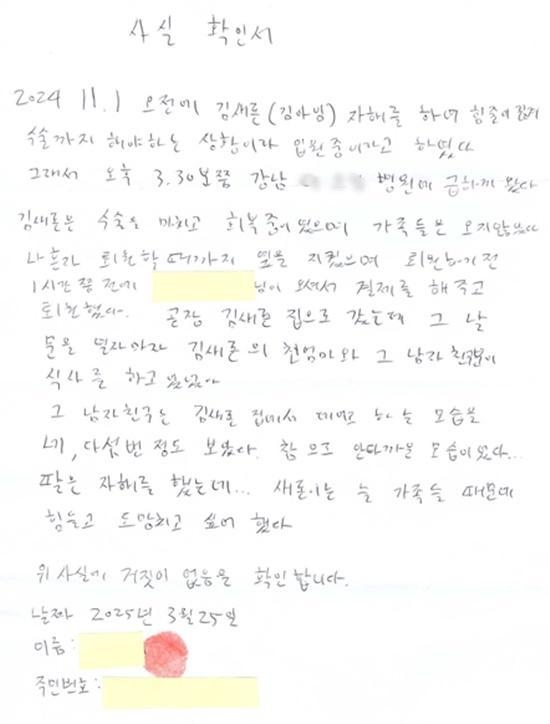 사실 확인서
2024 11.1 오전에 김새론(김아임) 자해를 하여 힘줄이 끊겨
수술까지 해야하는 상황이라 입원중이라고 하였다
그래서 오후 3.30분쯤 강남 병원에 급하게 갔다
김새론은 수술을 마치고 회복중이었으며 가족들은 오지않았다
나혼자 퇴원할때까지 옆을 지켰으며 퇴원하기전
1시간 쯤 전에 님이 오셔서 결제를 해주고
퇴원했다. 곧장 김새론 집으로 갔는데 그 날
문을 열자마자 김새론의 친엄마와 그 남자친구분이
식사를 하고 있었다
그 남자친구는 김새론 집에서 하는 모습을
네, 다섯번 정도 보았다. 참으로 안타까운 모습이였다...
팔은 자해를 했는데... 새론이는 늘 가족들 때문에
힘들고 도망치고 싶어 했다
위 사실에 거짓이 없음을 확인합니다.
날짜 2025년 3월 25일
이름:
주민번호: